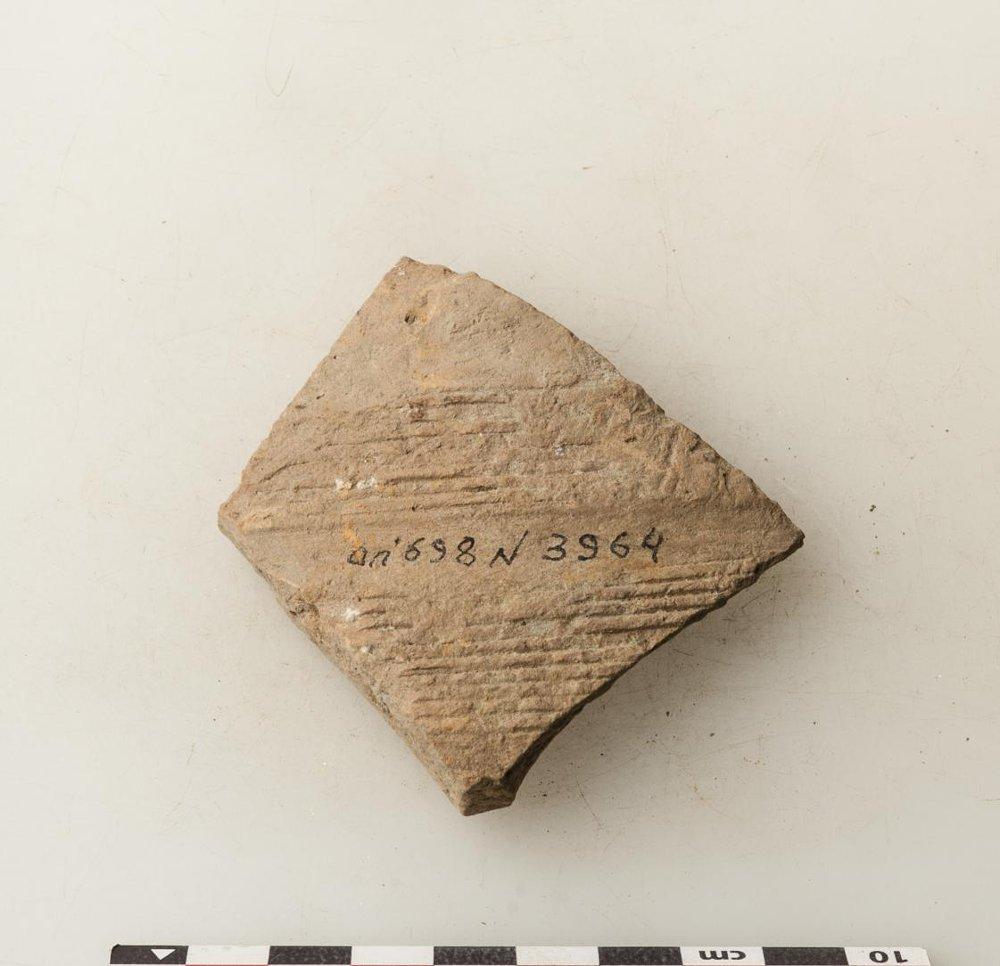 an'698 N 3964
cm 10